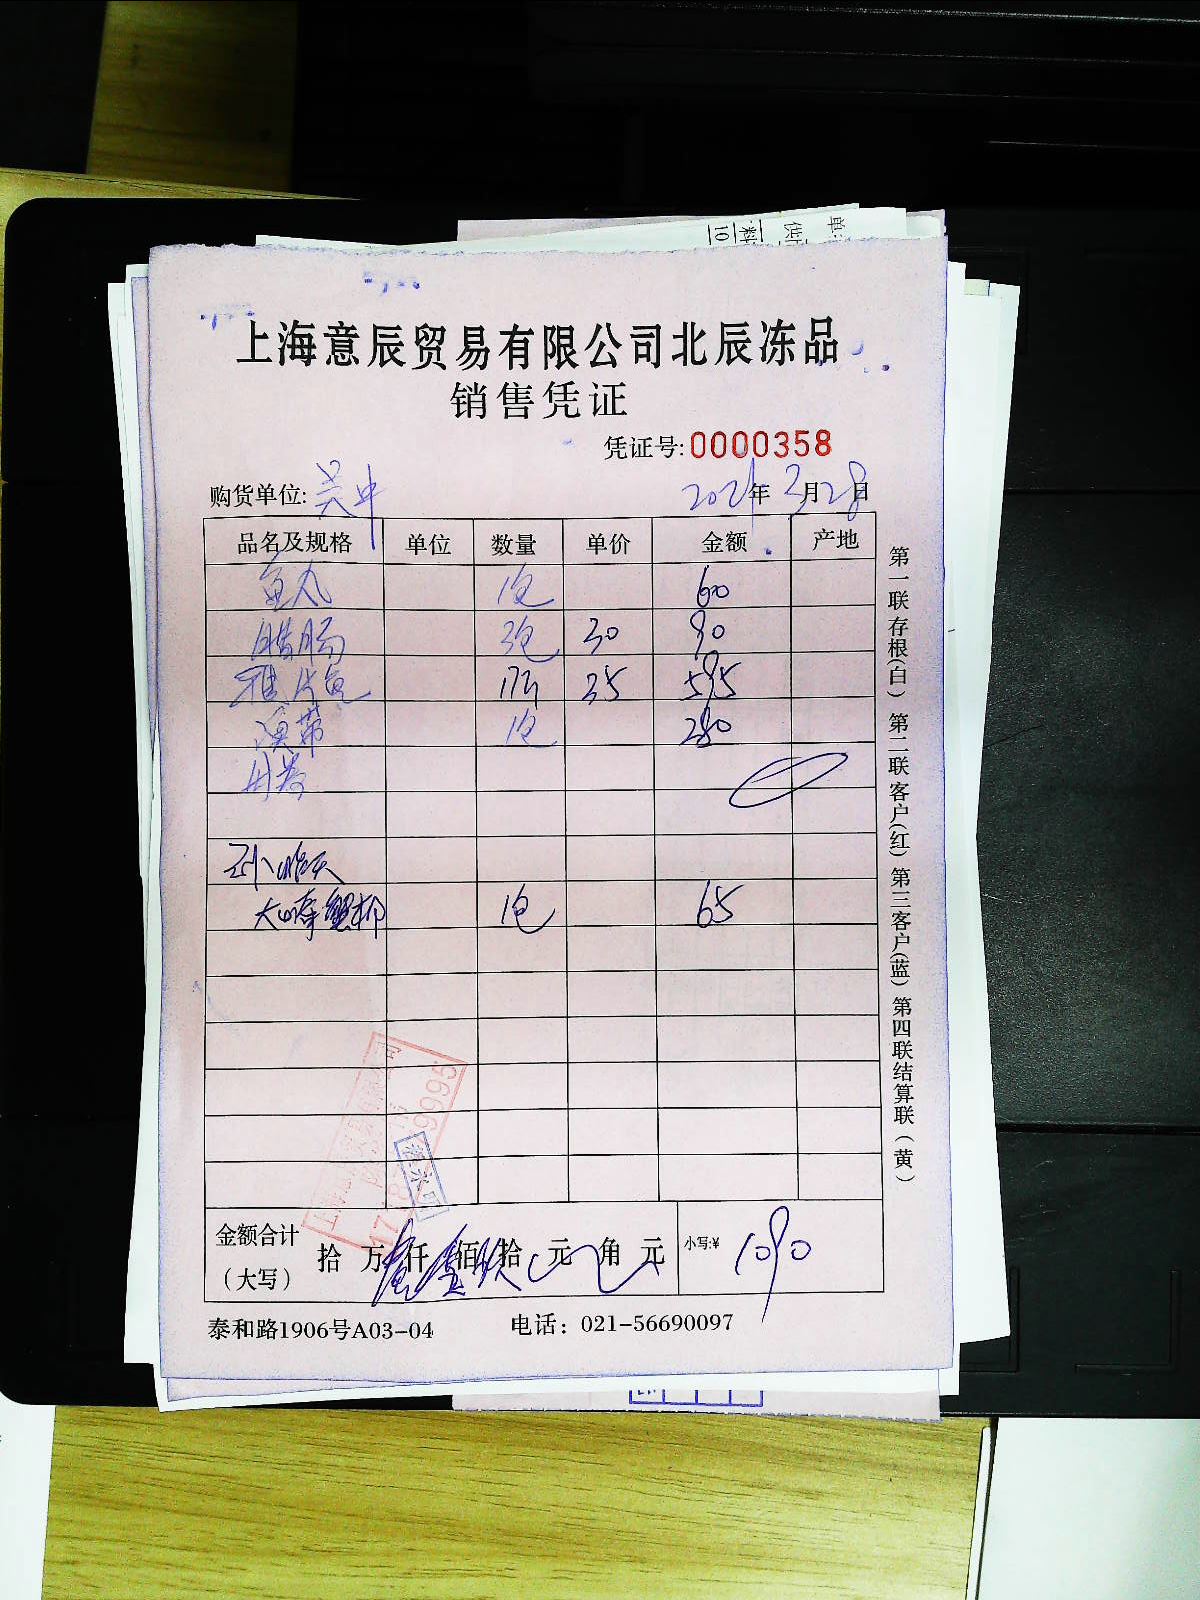 上海意辰贸易有限公司北辰冻品
销售凭证
凭证号:0000358
购货单位: 吴中 2021年3月28日
品名及规格 单位 数量 单价 金额 产地
鱼丸 1包 60
腊肠 3包 30 90
鱼 17 35 595
带 1包 280
昨天
大崎蟹柳 1包 65
金额合计
(大写) 拾 万 仟 佰 拾 元 角 元 小写:¥ 1090
泰和路1906号A03-04 电话: 021-56690097
第一联存根(白) 第二联客户(红) 第三客户(蓝) 第四联结算联(黄)